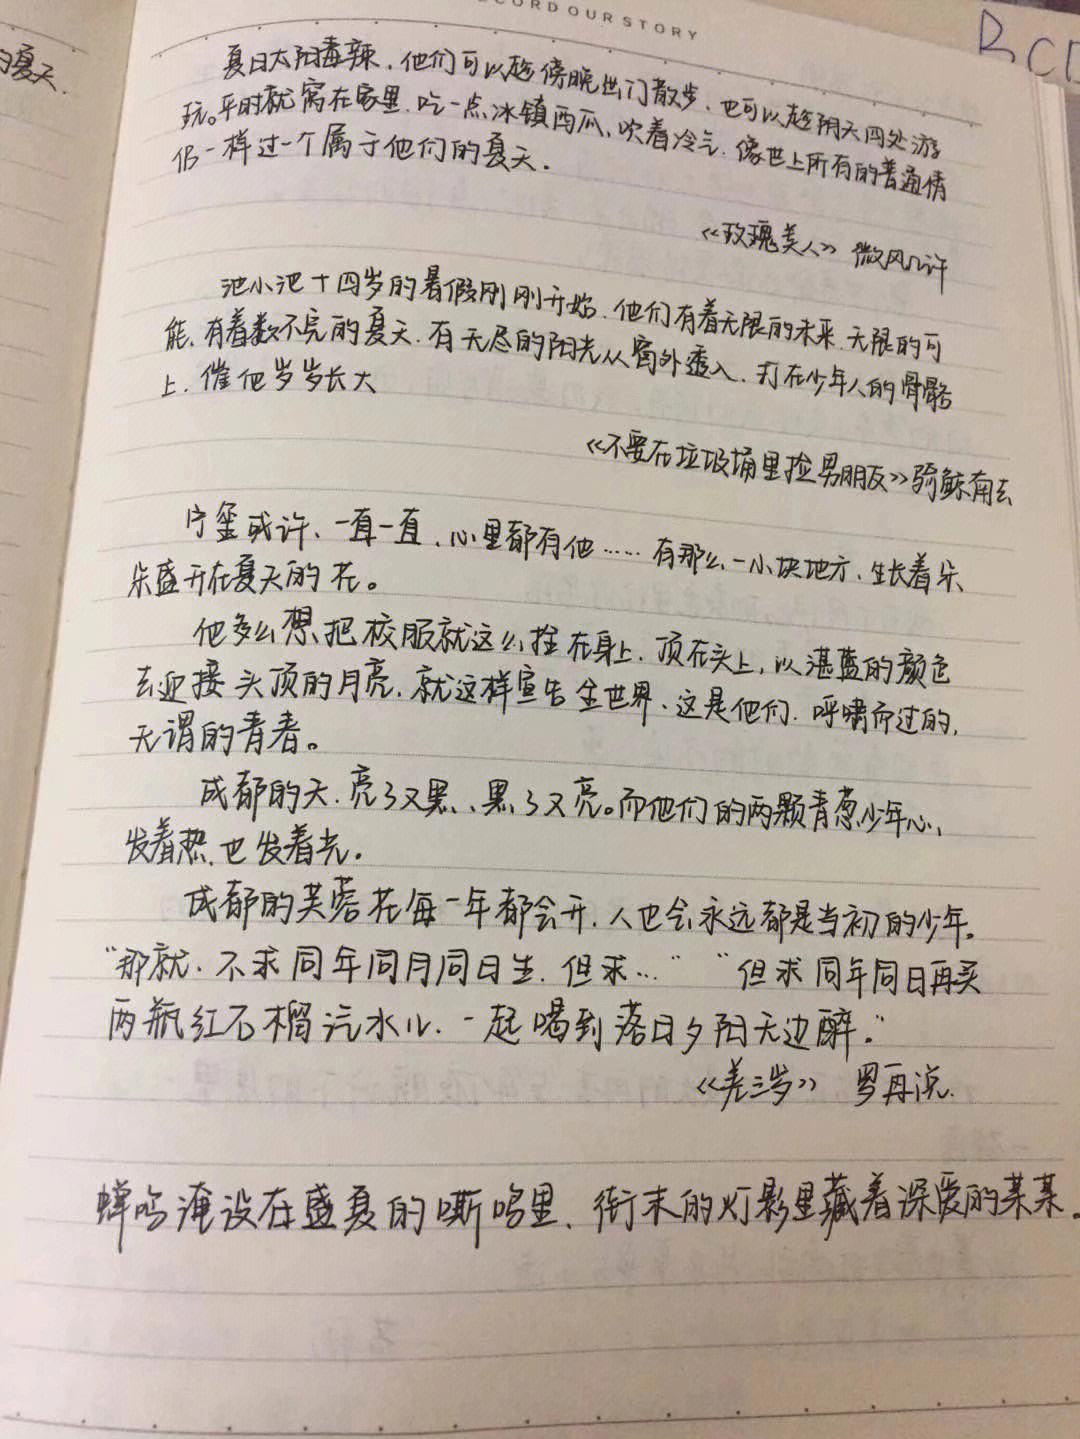 RECORD OUR STORY
的夏天.
夏日太阳毒辣,他们可以趁傍晚出门散步,也可以趁阴天四处游
玩。平时就窝在家里,吃一点冰镇西瓜,吹着冷气,像世上所有的普通情
侣一样过一个属于他们的夏天.
《玫瑰美人》 微风几许
池小池十四岁的暑假刚刚开始,他们有着无限的未来,无限的可
能,有着数不完的夏天,有无尽的阳光从窗外透入,打在少年人的骨骼
上,催他岁岁长大
《不要在垃圾桶里捡男朋友》骑鲸南去
宁玺或许、一直一直,心里都有他……有那么一小块地方,生长着朵
朵盛开在夏天的花。
他多么想把校服就这么拴在身上,顶在头上,以湛蓝的颜色
去迎接头顶的月亮,就这样宣告全世界、这是他们,呼啸而过的,
无谓的青春。
成都的天,亮了又黑、黑了又亮。而他们的两颗青葱少年心,
发着热,也发着光。
成都的芙蓉花每一年都会开,人也会永远都是当初的少年。
“那就,不求同年同月同日生,但求…” “但求同年同日再买
两瓶红石榴汽水儿,一起喝到落日夕阳无边醉。”
《差三岁》 罗再说.
蝉鸣淹没在盛夏的嘶鸣里,街末的灯影里藏着深爱的某某.